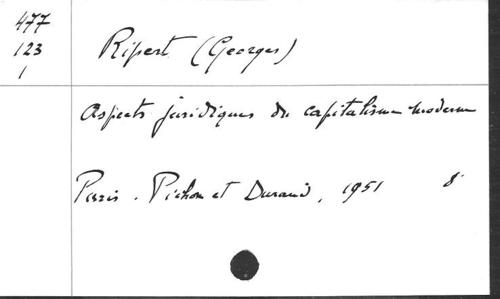 477
123
1
Ripert (Georges)
Aspects juridiques du capitalisme moderne
Paris. Pichon et Durand, 1951 8°